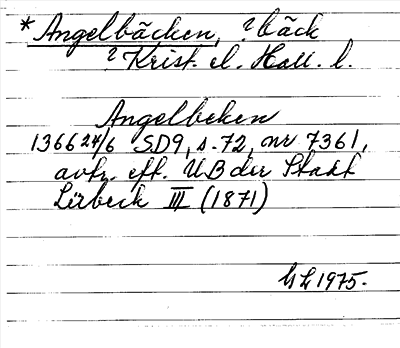 * Angelbäcken, ? bäck
? Krist. el. Hall. l.
Angelbeken
1366 24/6 SD9, s. 72, nr 7361,
avtr. eft. UB der Stadt
Lübeck III (1871)
GL 1975.